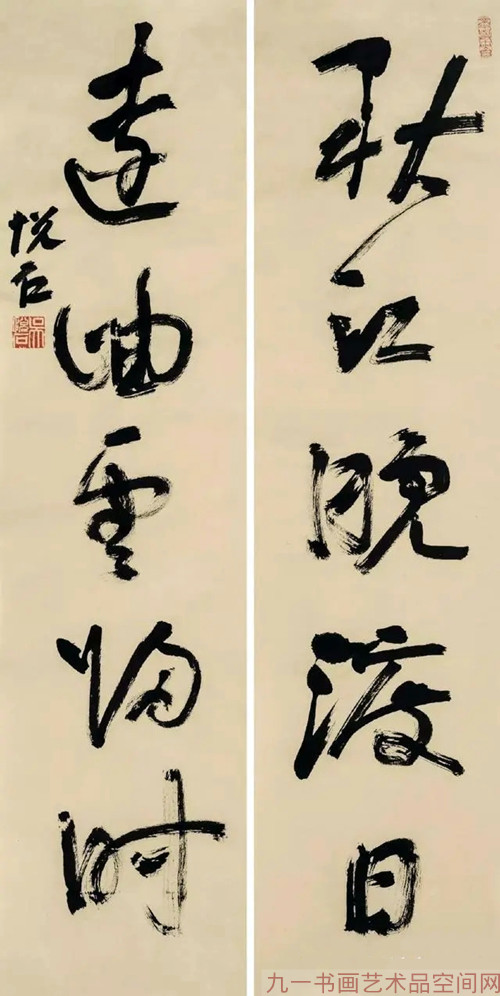 秋江晚渡日
遠岫雲歸時
悦石
九一书画艺术品空间网